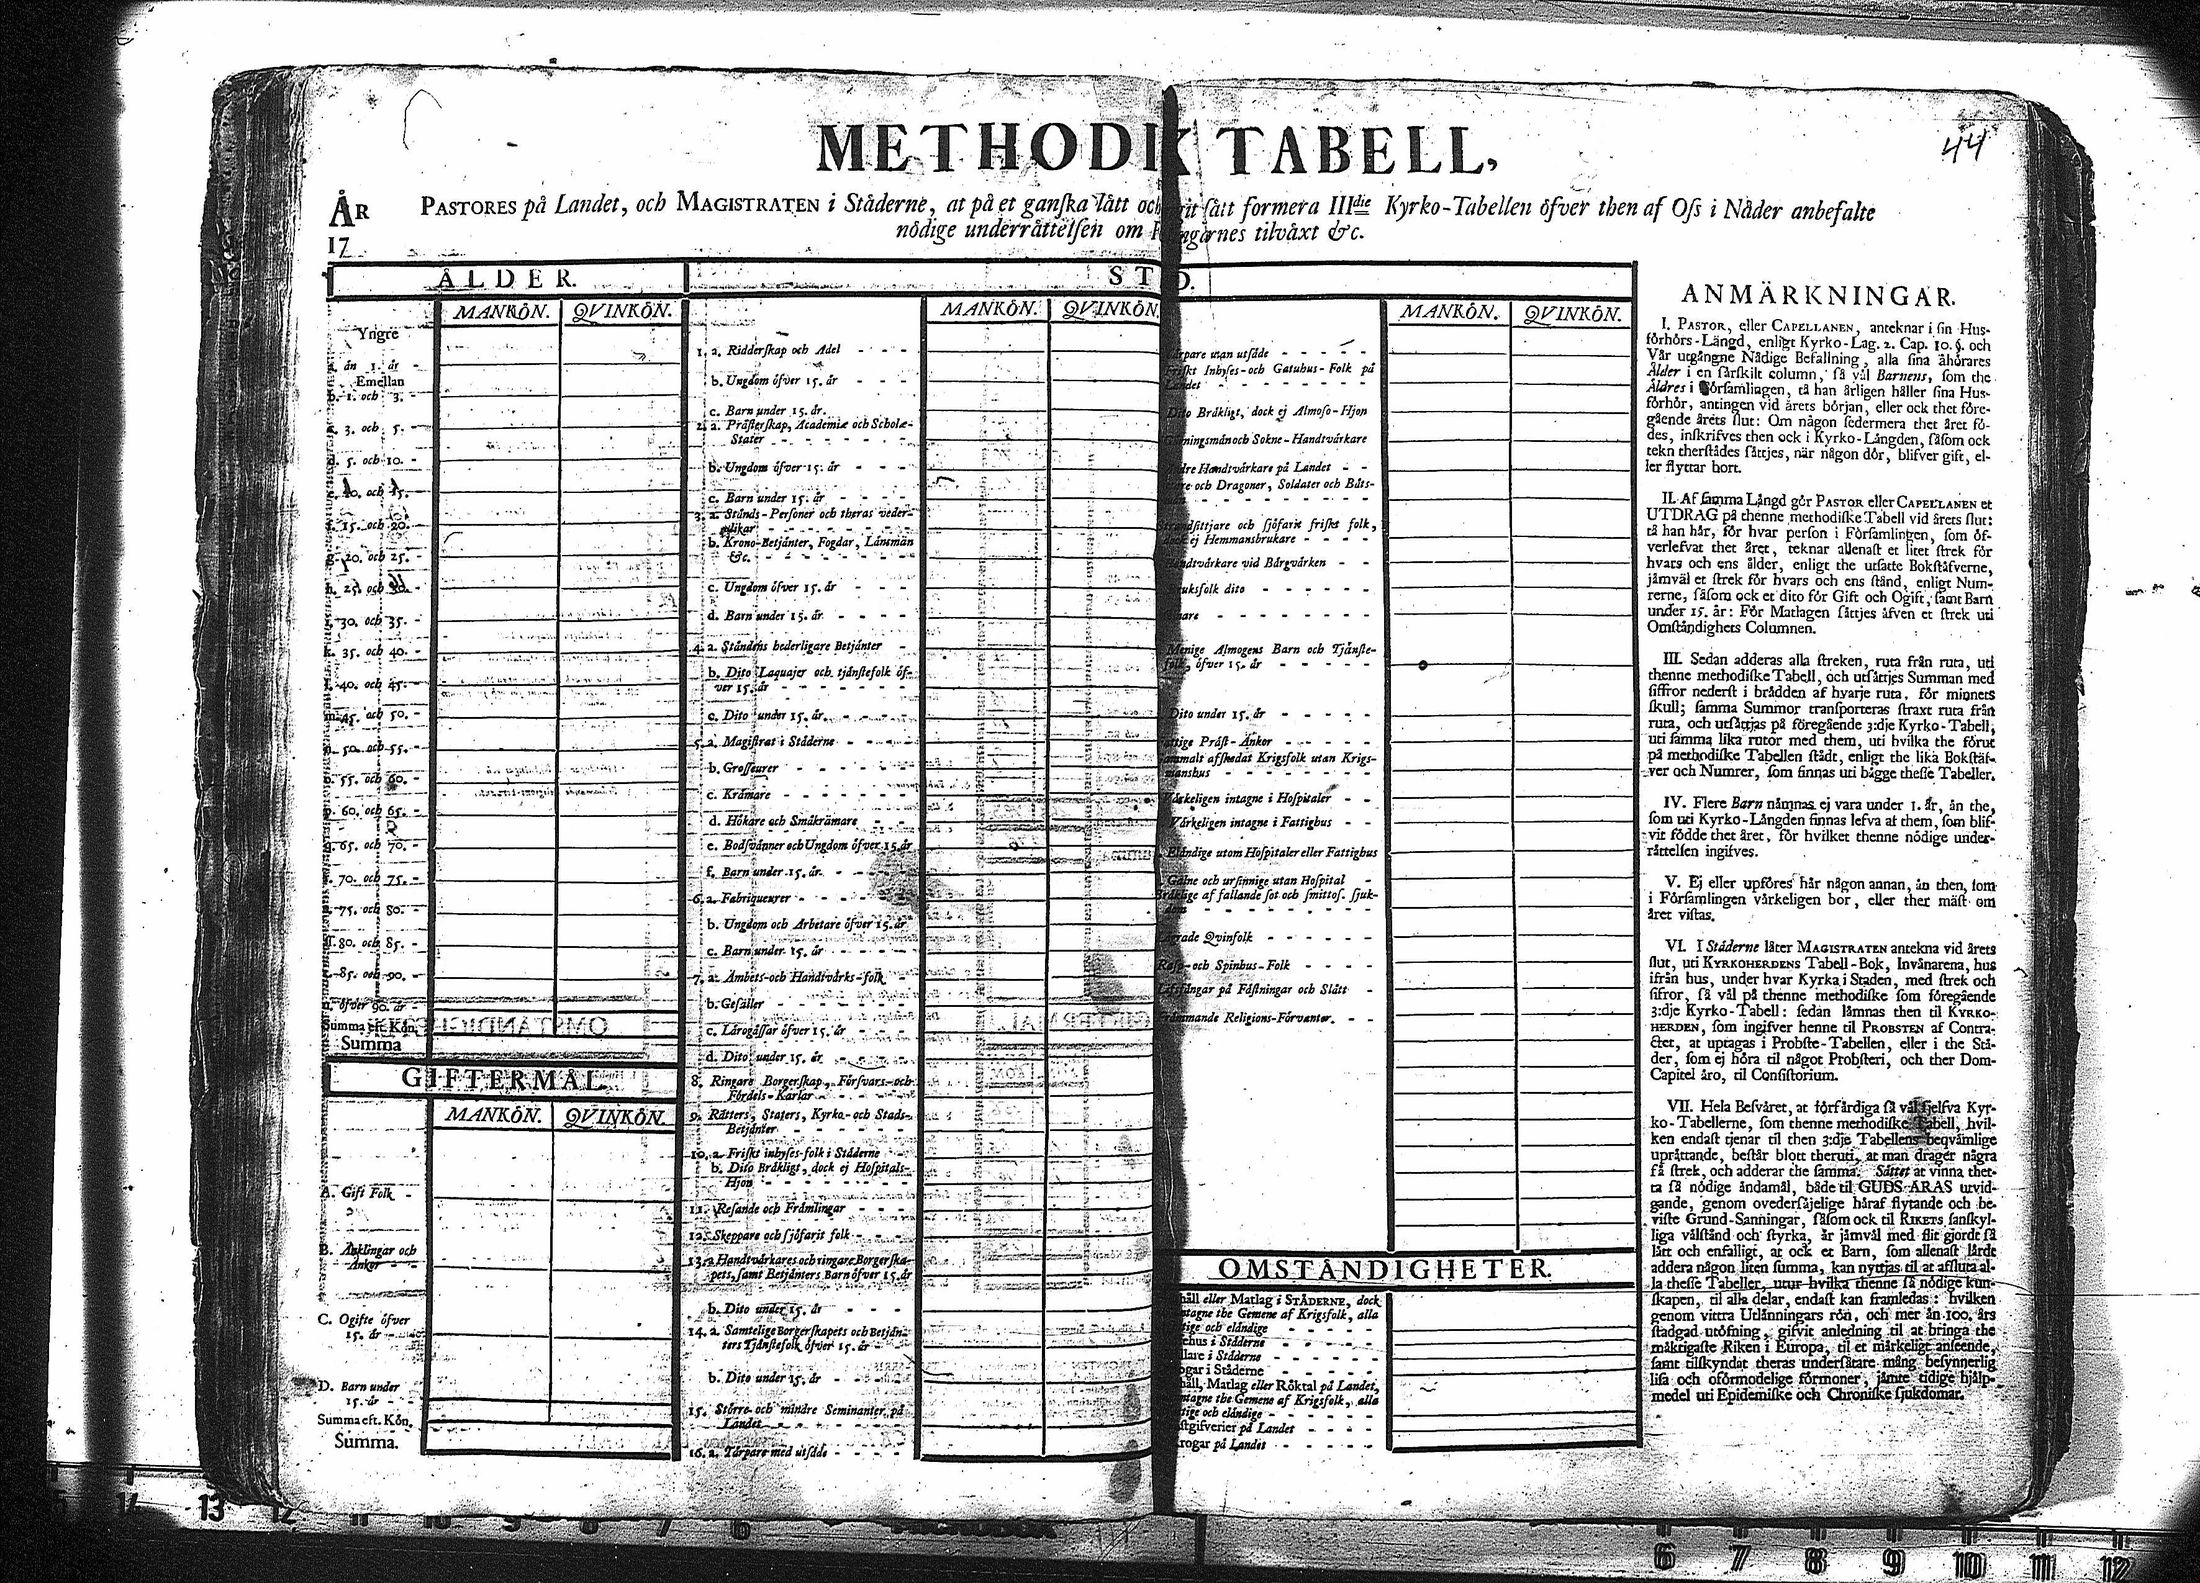 METHODI TABELL,
44
ÅR
17
PASTORES på Landet, och MAGISTRATEN i Ståderne, at på et ganſka lått och ſått formera IIIdie Kyrko-Tabellen öfver then af Oſs i Nåder anbefalte
nödige underråttelſen om tilvåxt &c.
ÅLDER.
MANKÖN. QVINKÖN.
Yngre
a. ån 1. år -
Emellan
b. 1. och 3.
3. och 5. -
d. 5. och 10. -
10. och 15. -
f. 15. och 20. -
g. 20. och 25. -
h. 25. och 30. -
30. och 35. -
k. 35. och 40. -
l. 40. och 45. -
m. 45. och 50. -
n. 50. och 55. -
o. 55. och 60. -
p. 60. och 65. -
q. 65. och 70. -
r. 70. och 75. -
75. och 80. -
80. och 85. -
85. och 90. -
u. öfver 90. år
Summa eft. Kön.
Summa
GIFTERMÅL.
MANKÖN. QVINKÖN.
A. Gift Folk -
B. Änklingar och
Änkor - -
C. Ogifte öfver
15. år
D. Barn under
15. år - -
Summa eft. Kön.
Summa.
ST D.
MANKÖN. QVINKÖN.
1. a. Ridderſkap och Adel - - -
b. Ungdom öfver 15. år - - -
c. Barn under 15. år.
2. a. Pråſterſkap, Academiæ och Scholæ-
Stater - - - - -
b. Ungdom öfver 15. år - - -
c. Barn under 15. år - - - -
3. a. Stånds-Perſoner och theras veder-
gelikar - - - - -
b. Krono-Betjånter, Fogdar, Låntmån
&c. - - - - - -
c. Ungdom öfver 15. år - - -
d. Barn under 15. år - - - -
4. a. Ståndens hederligare Betjånter -
b. Dito Laquajer och tjånſtefolk öf-
ver 15. år - - - - -
c. Dito under 15. år. - - - -
5. a. Magiſtrat i Ståderne - - - -
b. Groſſeurer - - - - - -
c. Kråmare - - - - - -
d. Hökare och Småkråmare - -
e. Bodſvånner och Ungdom öfver 15. år
f. Barn under 15. år. - - - -
6. a. Fabriqueurer - - - - -
b. Ungdom och Arbetare öfver 15. år
c. Barn under 15. år - - - -
7. a. Åmbets-och Handtvårks-folk -
b. Geſåller - - - - - -
c. Lårogåſſar öfver 15. år - - -
d. Dito under 15. år - - - -
8. Ringare Borgerſkap, Förſvars-och
Fördels-Karlar - - - -
9. Råtters, Staters, Kyrko-och Stads-
Betjånter - - - - -
10. a. Friſkt inhyſes-folk i Ståderne -
b. Dito Bråkligt, dock ej Hoſpitals-
Hjon - - - - - -
11. Reſande och Fråmlingar - - -
12. Skeppare och ſjöfarit folk - - -
13. a. Handtvårkares och ringare Borgerſka-
pets, ſamt Betjånters Barn öfver 15. år
b. Dito under 15. år - - -
14. a. Samtelige Borgerſkapets och Betjån-
ters Tjånſtefolk öfver 15. år - -
b. Dito under 15. år - - - -
15. Större och mindre Seminanter på
Landet - - - - - -
16. a. Tårpare med utſåde - - - -
MANKÖN. QVINKÖN.
utan utſåde - - - - -
Inhyſes-och Gatuhus-Folk på
- - - - - -
Bråkligt, dock ej Almoſo-Hjon
och Sokne-Handtvårkare
Handtvårkare på Landet - -
och Dragoner, Soldater och Båts-
- - - - - -
och ſjöfarit friſkt folk,
ej Hemmansbrukare - - - -
vid Bårgvården - -
dito - - - - - -
- - - - - -
Menige Almogens Barn och Tjånſte-
folk, öfver 15. år - - - - -
Dito under 15. år - - - - -
Pråſt-Änkor - - - - -
afſkedat Krigsfolk utan Krigs-
- - - - - -
intagne i Hoſpitaler - -
Vårkeligen intagne i Fattighus - -
Elåndige utom Hoſpitaler eller Fattighus
Galne och urſinnige utan Hoſpital -
af fallande ſot och ſmittoſ. ſjuk-
- - - - - -
Qvinfolk - - - - -
och Spinhus-Folk - - - -
på Fåſtningar och Slått -
Religions-Förvanter. - -
OMSTÅNDIGHETER.
eller Matlag i STÅDERNE, dock
the Gemene af Krigsfolk, alla
och elåndige - - - - -
i Ståderne - - - - -
i Ståderne - - - - -
i Ståderne - - - - -
Matlag eller Röktal på Landet,
the Gemene af Krigsfolk, alla
och elåndige - - - - -
på Landet - - - -
på Landet - - - - -
ANMÄRKNINGAR.
I. PASTOR, eller CAPELLANEN, anteknar i ſin Hus-
förhörs-Långd, enligt Kyrko-Lag. 2. Cap. 10. §. och
Vår utgångne Nådige Befallning, alla ſina åhörares
Ålder i en ſårſkilt column, ſå vål Barnens, ſom the
Åldres i Förſamlingen, tå han årligen håller ſina Hus-
förhör, antingen vid årets början, eller ock thet före-
gående årets ſlut: Om någon ſedermera thet året fö-
des, inſkrifves then ock i Kyrko-Långden, ſåſom ock
tekn therſtådes ſåttjes, når någon dör, blifver gift, el-
ler flyttar bort.
II. Af ſamma Långd gör PASTOR eller CAPELLANEN et
UTDRAG på thenne methodiſke Tabell vid årets ſlut:
tå han hår, för hvar perſon i Förſamlingen, ſom öf-
verlefvat thet året, teknar allenaſt et litet ſtrek för
hvars och ens ålder, enligt the utſatte Bokſtåfverne,
jåmvål et ſtrek för hvars och ens ſtånd, enligt Num-
rerne, ſåſom ock et dito för Gift och Ogift, ſamt Barn
under 15. år: För Matlagen ſåttjes åfven et ſtrek uti
Omſtåndighets Columnen.
III. Sedan adderas alla ſtreken, ruta från ruta, uti
thenne methodiſke Tabell, och utſåttjes Summan med
ſiffror nederſt i brådden af hvarje ruta, för minnets
ſkull; ſamma Summor tranſporteras ſtraxt ruta från
ruta, och utſåttjas på föregående 3:dje Kyrko-Tabell,
uti ſamma lika rutor med them, uti hvilka the förut
på methodiſke Tabellen ſtådt, enligt the lika Bokſtåf-
ver och Numrer, ſom finnas uti bågge theſſe Tabeller.
IV. Flere Barn nåmnas ej vara under 1. år, ån the,
ſom uti Kyrko-Långden finnas lefva af them, ſom blif-
vit födde thet året, för hvilket thenne nödige under-
råttelſen ingifves.
V. Ej eller upföres hår någon annan, ån then, ſom
i Förſamlingen vårkeligen bor, eller ther måſt om
året viſtas.
VI. I Ståderne låter MAGISTRATEN antekna vid årets
ſlut, uti KYRKOHERDENS Tabell-Bok, Invånarena, hus
ifrån hus, under hvar Kyrka i Staden, med ſtrek och
ſifror, ſå vål på thenne methodiſke ſom föregående
3:dje Kyrko-Tabell: ſedan låmnas then til KYRKO-
HERDEN, ſom ingifver henne til PROBSTEN af Contra-
ctet, at uptagas i Probſte-Tabellen, eller i the Stå-
der, ſom ej höra til något Probſteri, och ther Dom-
Capitel åro, til Conſiſtorium.
VII. Hela Beſvåret, at förfårdiga ſå vål ſjelfva Kyr-
ko-Tabellerne, ſom thenne methodiſke Tabell, hvil-
ken endaſt tjenar til then 3:dje Tabellens beqvåmlige
upråttande, beſtår blott theruti, at man drager några
få ſtrek, och adderar the ſamma. Såttet at vinna thet-
ta ſå nödige åndamål, både til GUDS ÅRAS utvid-
gande, genom overderſåjelige håraf flytande och be-
viſte Grund-Sanningar, ſåſom ock til RIKETS ſanſkyl-
liga vålſtånd och ſtyrka, år jåmvål med flit gjordt ſå
lått och enfalligt, at ock et Barn, ſom allenaſt lårde
addera någon liten ſumma, kan nyttjas til at aſſluta al-
la theſſe Tabeller, utur hvilka thenne ſå nödige kun-
ſkapen, til alla delar, endaſt kan framledas: hvilken
genom vittra Utlånningars rön, och mer ån 100. års
ſtadgad utöfning, gifvit anledning til at bringa the
måktigaſte Riken i Europa, til et mårkeligt anſeende,
ſamt tilſkyndat theras underſåtare mång beſynnerlig
liſa och oförmodelige förmoner, jåmte tidige hjålp-
medel uti Epidemiſke och Chroniſke ſjukdomar.
13
6 7 8 9 10 11 12